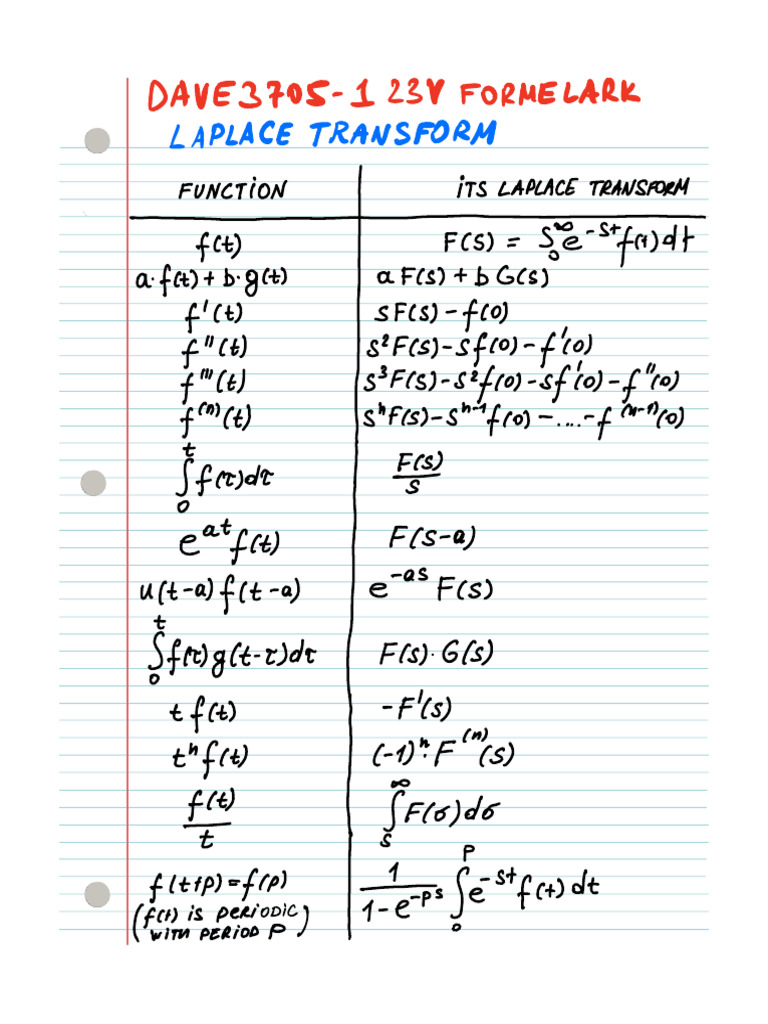 DAVE3705-1 23V FORMELARK
LAPLACE TRANSFORM
FUNCTION ITS LAPLACE TRANSFORM
f(t) F(s) = ∫₀^∞ e^{-st} f(t) dt
a·f(t) + b·g(t) a F(s) + b G(s)
f'(t) sF(s) - f(0)
f''(t) s²F(s) - sf(0) - f'(0)
f'''(t) s³F(s) - s²f(0) - sf'(0) - f''(0)
f^{(n)}(t) s^n F(s) - s^{n-1} f(0) - .... - f^{(n-1)}(0)
∫₀^t f(τ)dτ F(s)/s
e^{at} f(t) F(s-a)
u(t-a) f(t-a) e^{-as} F(s)
∫₀^t f(τ) g(t-τ)dτ F(s)·G(s)
t f(t) -F'(s)
t^n f(t) (-1)^n · F^{(n)}(s)
f(t)/t ∫_s^∞ F(σ)dσ
f(t+p) = f(p) 1/(1-e^{-ps}) ∫₀^p e^{-st} f(t) dt
(f(t) is PERIODIC
WITH PERIOD P)